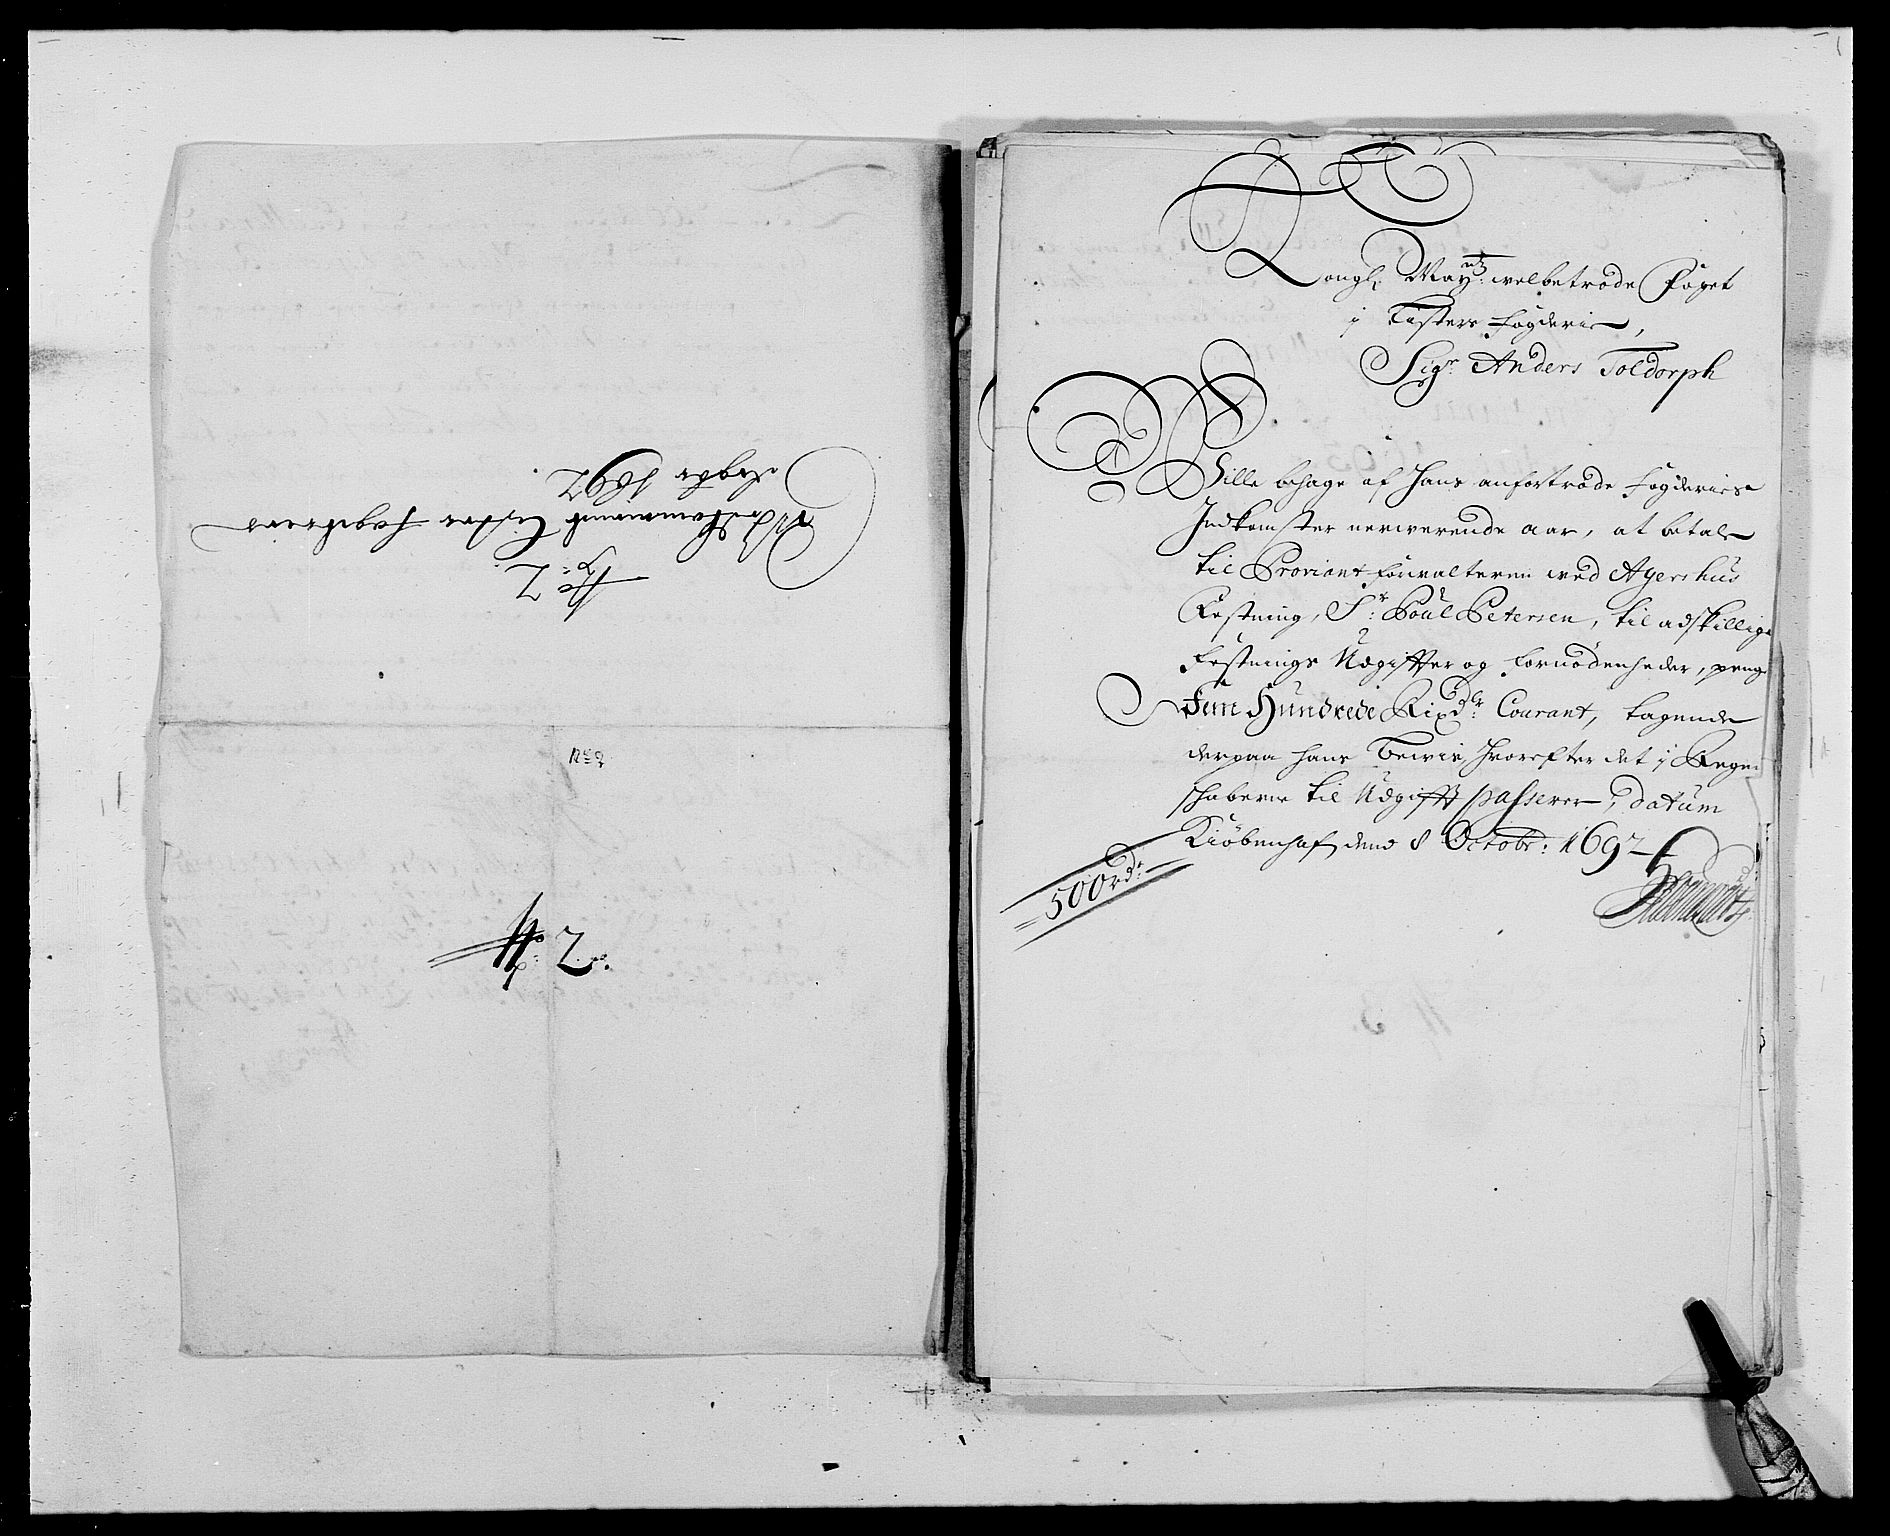 No 2
Lister
1692
No 2
N: 2
Kongl: Maytz: welbetrode Foget
i Listers Fogderie,
Sigr: Anders Toldorph
Wille behage af hans anfortrode Fogderies
Indkomster nerwerende aar, at betale
til Proviantforvalteren ved Agershus
Festning, Sr: Poul Petersen, til adskillige
Festnings Udgiffter og fornødenheder, penge
Fem Hundrede Rixdlr: Courant, tagende
derpaa hans Bewis, hvorefter det i Regen
schaberne til Udgifft passerer, datum
Kiöbenhafn dend 8 Octobr: 1692
500 rdr: